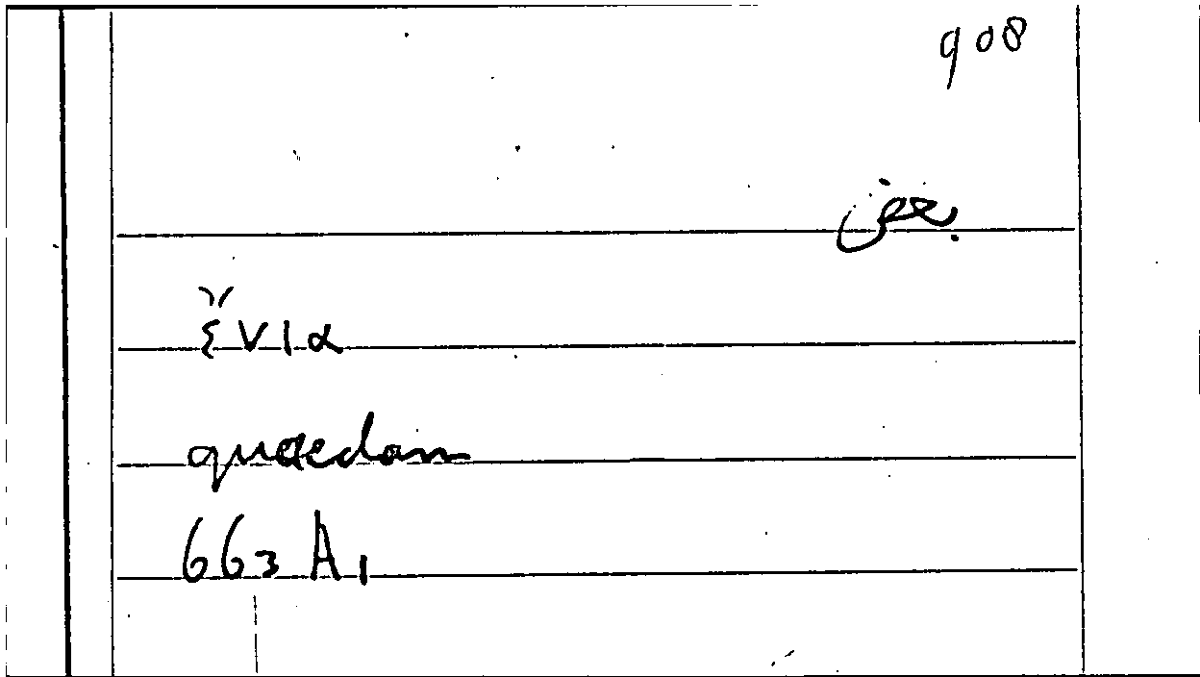 908
بعض
ἔνια
quaedam
663 A 1